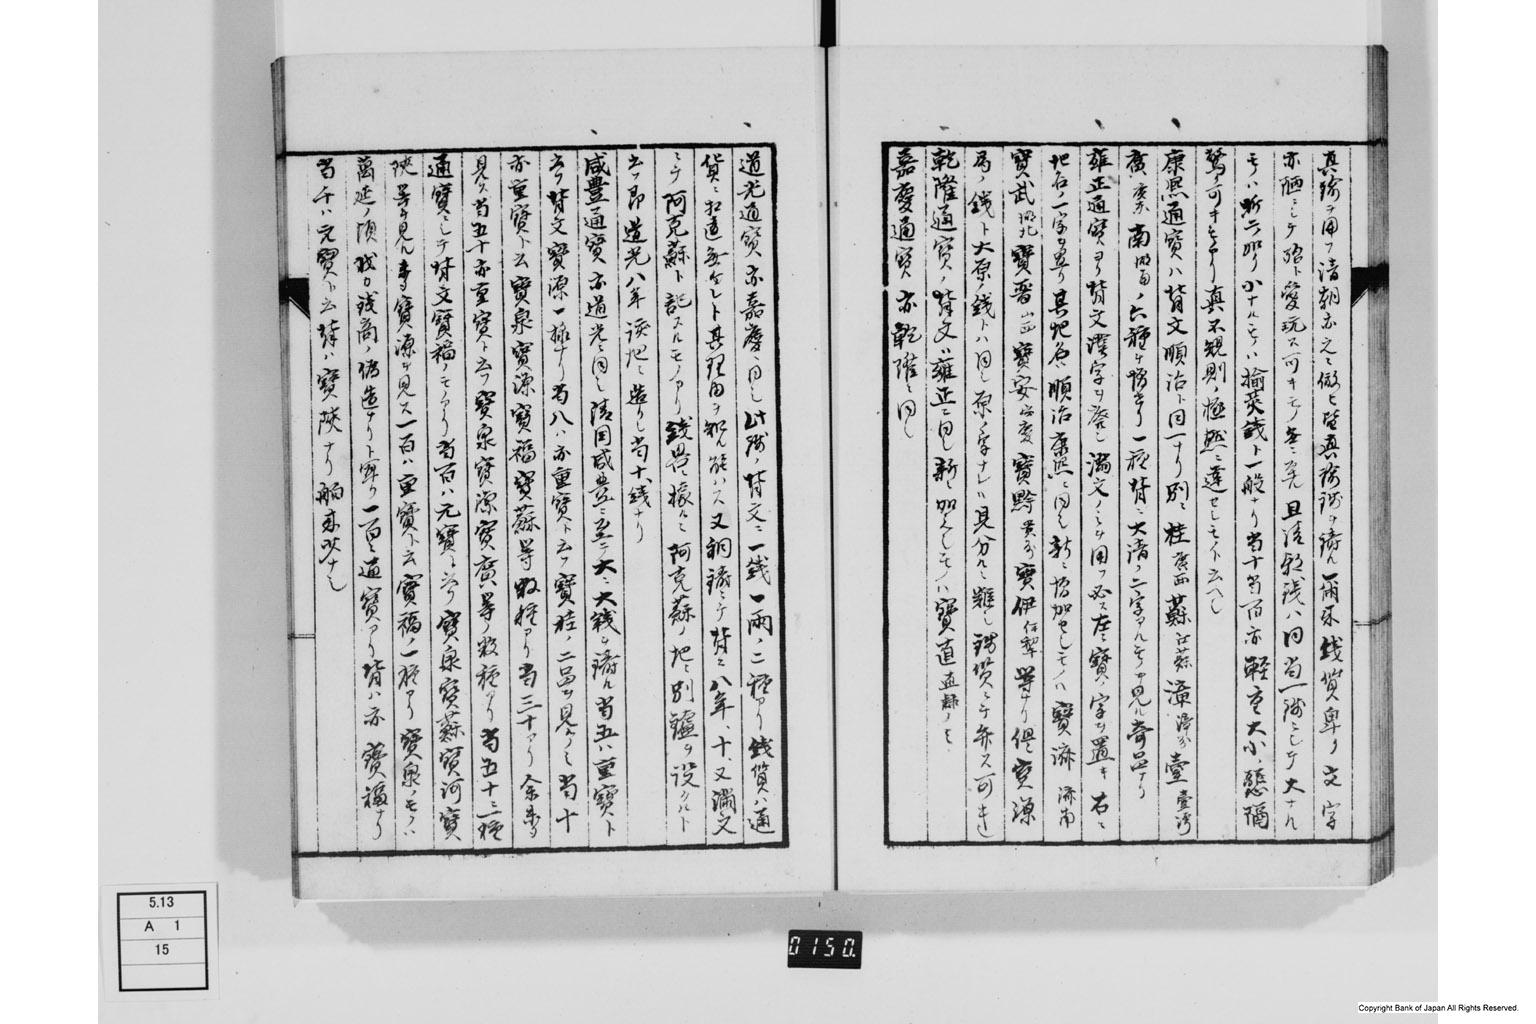 真鍮ヲ用フ清朝亦之ニ倣ヒ皆真鍮銭ヲ鋳ル爾来銭質卑ク文字
亦陋ニシテ殆ト愛玩ス可キモノ無シ且清朝銭ハ同当一銭ニシテ大ナル
モノハ折二ノ如ク小ナルモノハ楡莢銭ト一般ナリ当十当百亦軽重大小懸隔
驚ク可キモノアリ真不規則ノ極点ニ達セシモノト云ヘシ
康熙通寶ハ背文順治ト同一ナリ別ニ桂廣西蘇江蘇漳漳州臺臺湾
廣廣東南湖南ノ六種ヲ増セリ一種背ニ大清ノ二字アルモノヲ見ル奇品ナリ
雍正通寶ヨリ背文漢字ヲ廃シ満文ノミヲ用フ必ス左ニ寶ノ字ヲ置キ右ニ
地名ノ一字ヲ置ク其地名順治康熙ニ同シ新ニ増加セシモノハ寶濟濟南
寶武湖北寶晋山西寶安寶黔貴州寶伊伊犂等ナリ但寶源
局ノ銭ト大原ノ銭トハ同シ原ノ字ナレハ見分ルニ難シ銭質ニテ弁ス可キ
乾隆通寶ノ背文ハ雍正ニ同シ新ニ加ヘシモノハ寶直直隷ノミ
嘉慶通寶亦乾隆ニ同シ
道光通寶亦嘉慶ニ同シ此銭ノ背文ニ一銭一両ノ二種アリ銭質ハ通
貨ニ相違無ケレト其理由ヲ知ル能ハス又銅鋳ニテ背ニ八年、十、又満文
ニテ阿克蘇ト記スルモノアリ銭畧ニ據ルニ阿克蘇ノ地ニ別鑪ヲ設クルト
云フ即道光八年該地ニ造リシ当十銭ナリ
咸豊通寶亦道光ニ同シ清国咸豊ニ至テ大ニ大銭ヲ鋳ル当五ハ重寶ト
云フ背文寶源一様ナリ当八ハ亦重寶ト云フ寶桂ノ二品ヲ見タリ当十
亦重寶ト云寶泉寶源寶福寶蘇等数種アリ当三十アリ余未タ
見ス当五十亦重寶ト云フ寶泉寶源寶廣等ノ数種アリ当五十ニ種
通寶ニシテ背文寶福ノモノアリ当百ハ元寶ト云フ寶泉寶蘇寶河寶
陝等ヲ見ル未タ寶源ヲ見ス一百ハ重寶ト云寶福ノ一種アリ寶泉ノモノハ
萬延ノ頃我カ銭商ノ偽造ナリト聞ク一百ニ通寶アリ背ハ亦寶福ナリ
当千ハ元寶ト云背ハ寶陝ナリ舶来少ナシ
5.13
A 1
15
0150.
Copyright Bank of Japan All Rights Reserved.